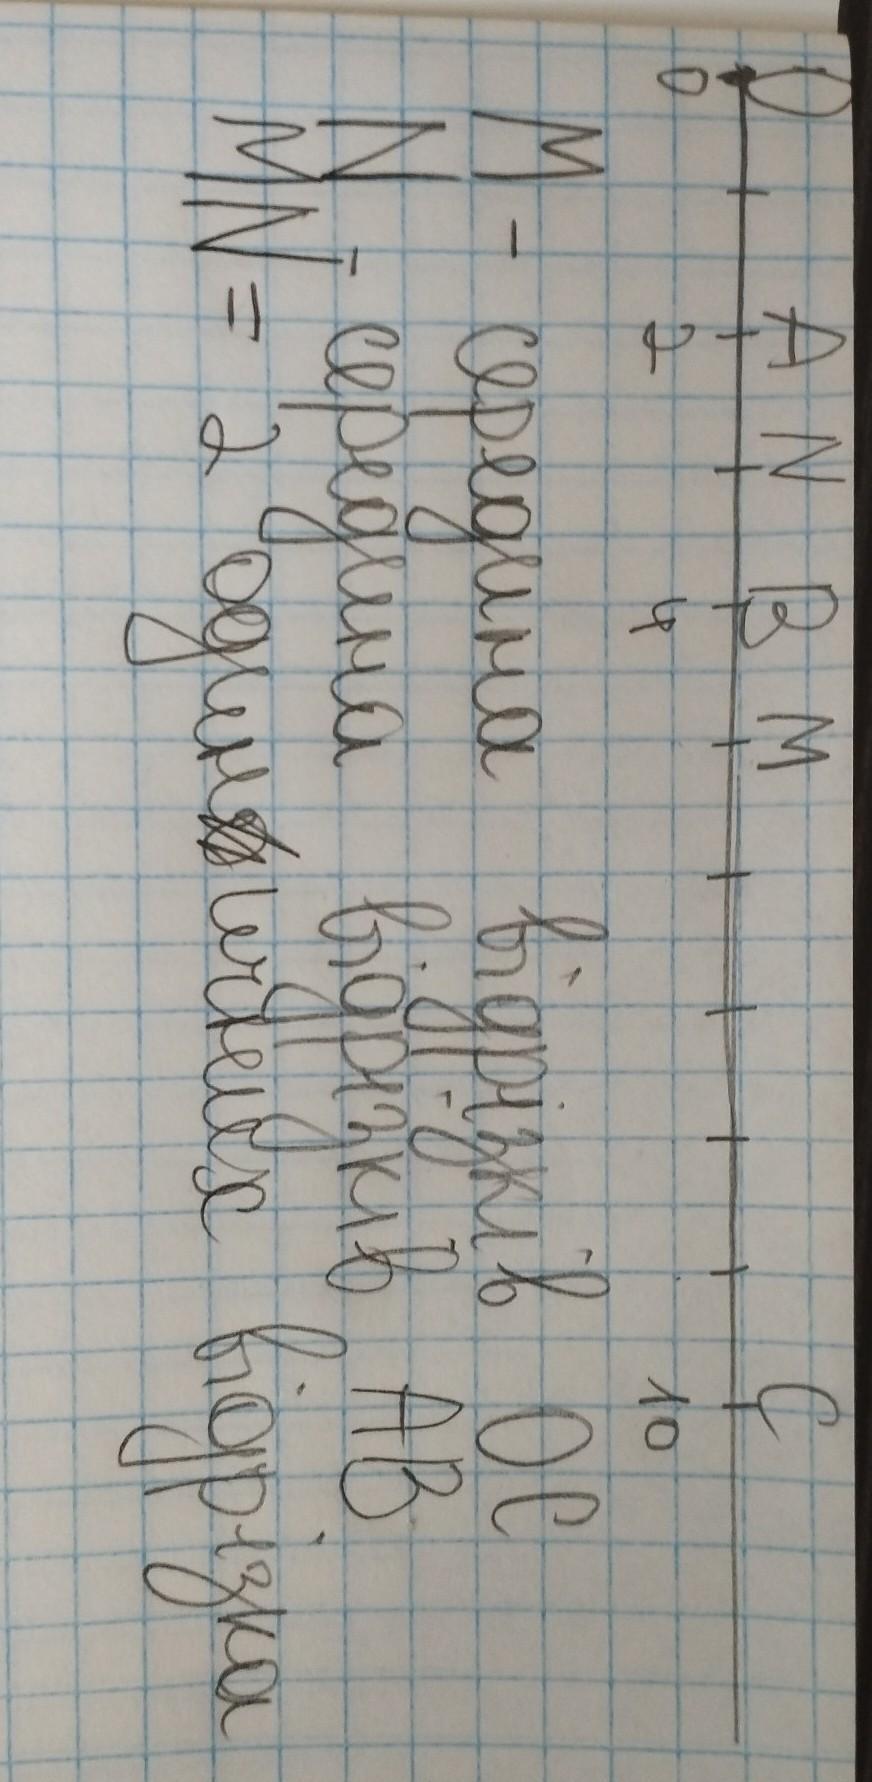 O A N B M C
0 2 4 10
M - середина відрізків OC
N - середина відрізків AB
MN = 2 один. відрізка